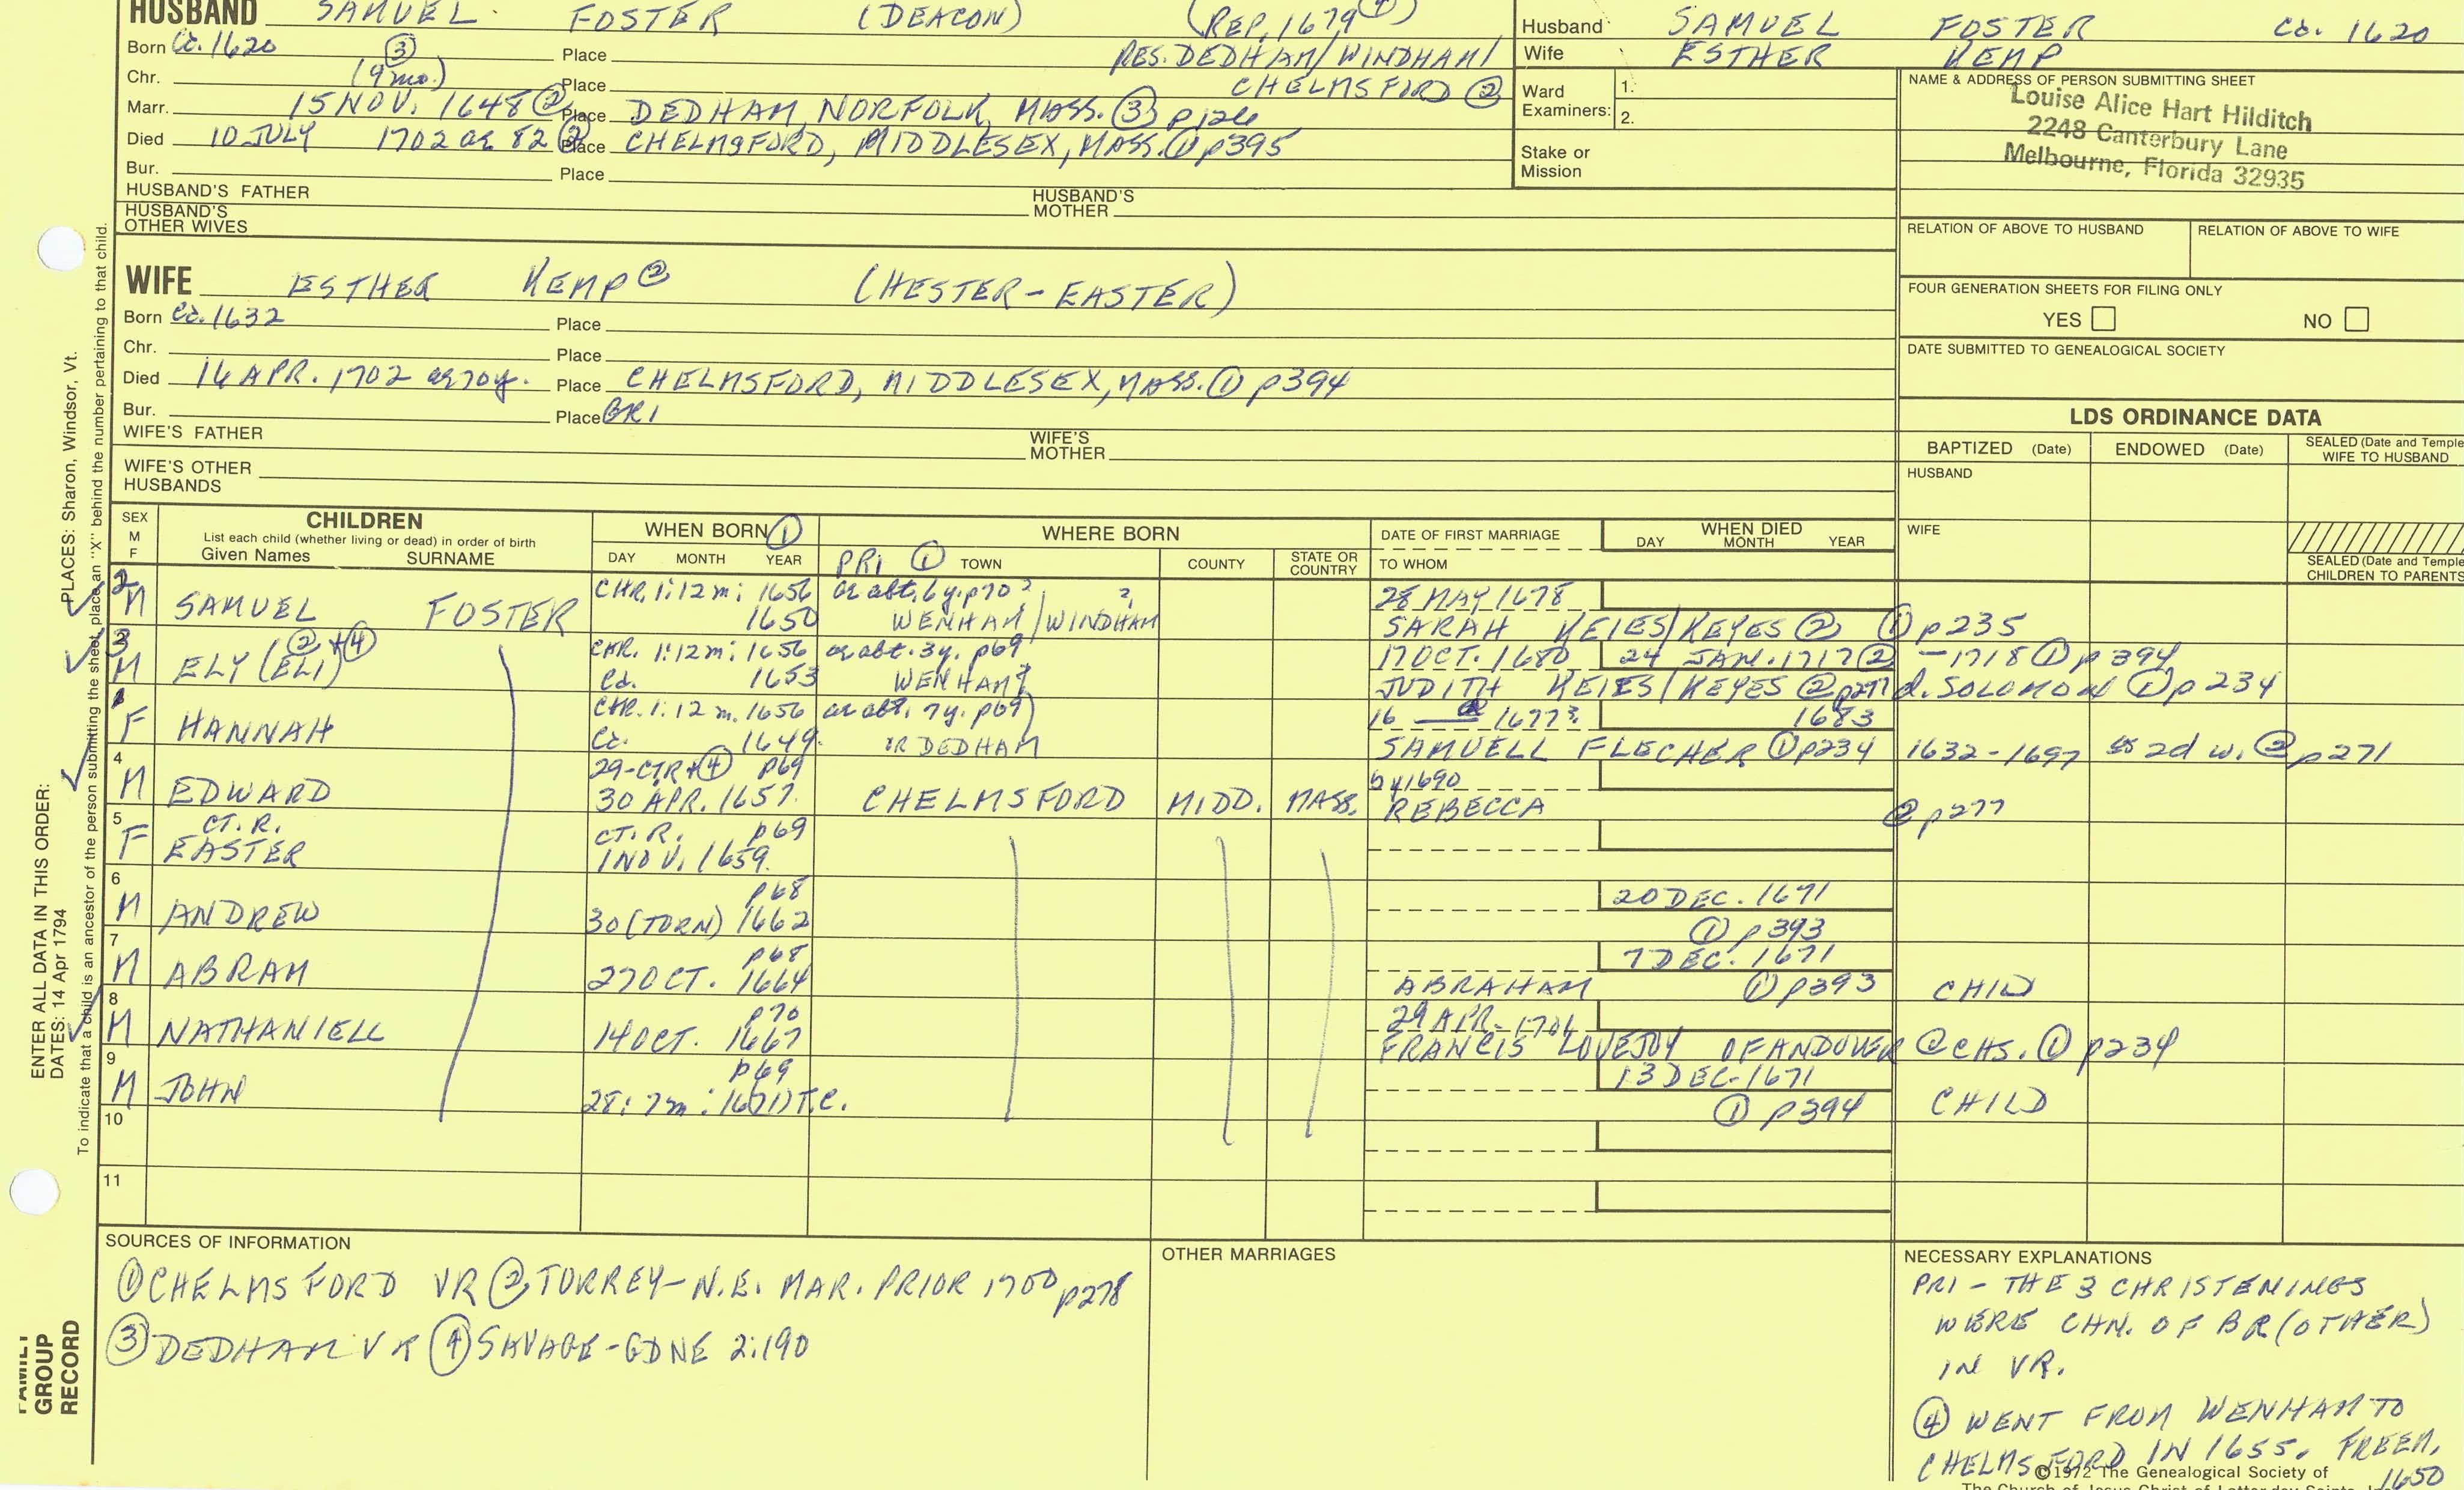 HUSBAND SAMUEL FOSTER (DEACON) (REP. 1679 ④)
Born Cd. 1620 ③ Place RES. DEDHAM/WINDHAM/
Chr. (9 mo.) Place CHELMSFORD ②
Marr. 15 NOV. 1648 ② Place DEDHAM, NORFOLK, MASS. ③ p126
Died 10 JULY 1702 ae 82 ② Place CHELMSFORD, MIDDLESEX, MASS. ① p395
Bur. Place
HUSBAND'S FATHER HUSBAND'S MOTHER
HUSBAND'S OTHER WIVES
Husband SAMUEL FOSTER Cd. 1620
Wife ESTHER KEMP
Ward Examiners: 1. 2.
Stake or Mission
NAME & ADDRESS OF PERSON SUBMITTING SHEET
Louise Alice Hart Hilditch
2248 Canterbury Lane
Melbourne, Florida 32935
RELATION OF ABOVE TO HUSBAND RELATION OF ABOVE TO WIFE
FOUR GENERATION SHEETS FOR FILING ONLY
YES NO
DATE SUBMITTED TO GENEALOGICAL SOCIETY
WIFE ESTHER KEMP ② (HESTER-EASTER)
Born Cd. 1632 Place
Chr. Place
Died 16 APR. 1702 ae 70y. Place CHELMSFORD, MIDDLESEX, MASS. ① p394
Bur. Place GR1
WIFE'S FATHER WIFE'S MOTHER
WIFE'S OTHER HUSBANDS
LDS ORDINANCE DATA
BAPTIZED (Date) ENDOWED (Date) SEALED (Date and Temple WIFE TO HUSBAND
HUSBAND
WIFE
SEALED (Date and Temple CHILDREN TO PARENTS
SEX M F
CHILDREN
List each child (whether living or dead) in order of birth
Given Names SURNAME
WHEN BORN ①
DAY MONTH YEAR
WHERE BORN
PR1 ① TOWN COUNTY STATE OR COUNTRY
DATE OF FIRST MARRIAGE
TO WHOM
WHEN DIED
DAY MONTH YEAR
2 CHR. 1:12m: 1656 ae abt. 6y. p70 ? ? 28 MAY 1678
M SAMUEL FOSTER 1650 WENHAM/WINDHAM SARAH KEIES/KEYES ② ① p235
3 ②+④ CHR. 1:12m: 1656 ae abt. 3y. p69 17 OCT. 1680 24 JAN. 1717 ② -1718 ① p394
M ELY (ELI) Cd. 1653 WENHAM? JUDITH KEIES/KEYES ② p277 d. SOLOMON ① p234
1 CHR. 1:12m. 1656 ae abt. 7y. p69 16 1677? 1683
F HANNAH Cd. 1649. OR DEDHAM SAMUELL FLECHER ① p234 1632-1697 as 2d w. ② p271
4 29-CTR+④ p69 by 1690
M EDWARD 30 APR. 1657. CHELMSFORD MIDD. MASS. REBECCA ② p277
5 CT. R. CT. R. p69
F EASTER 1 NOV. 1659.
6 p68 20 DEC. 1671
M ANDREW 30 (TORN) 1662 ① p393
7 p68 7 DEC. 1671
M ABRAM 27 OCT. 1664 ABRAHAM ① p393 CHILD
8 p70 29 APR. 1704
M NATHANIELL 14 OCT. 1667 FRANCIS LOVEJOY OF ANDOVER @ CHS. ① p234
9 p69 13 DEC. 1671
M JOHN 28: 7m: 1671) T.C. ① p394 CHILD
10
11
SOURCES OF INFORMATION
① CHELMSFORD VR ② TORREY-N.E. MAR. PRIOR 1700 p278
③ DEDHAM VR ④ SAVAGE-GDNE 2:190
OTHER MARRIAGES
NECESSARY EXPLANATIONS
PR1 - THE 3 CHRISTENINGS
WERE CHN. OF BR(OTHER)
IN VR.
④ WENT FROM WENHAM TO
CHELMSFORD IN 1655. FREEM.
1650
©1972 The Genealogical Society of
The Church of Jesus Christ of Latter-day Saints
ENTER ALL DATA IN THIS ORDER:
DATES: 14 Apr 1794 PLACES: Sharon, Windsor, Vt.
To indicate that a child is an ancestor of the person submitting the sheet, place an "X" behind the number pertaining to that child.
FAMILY
GROUP
RECORD